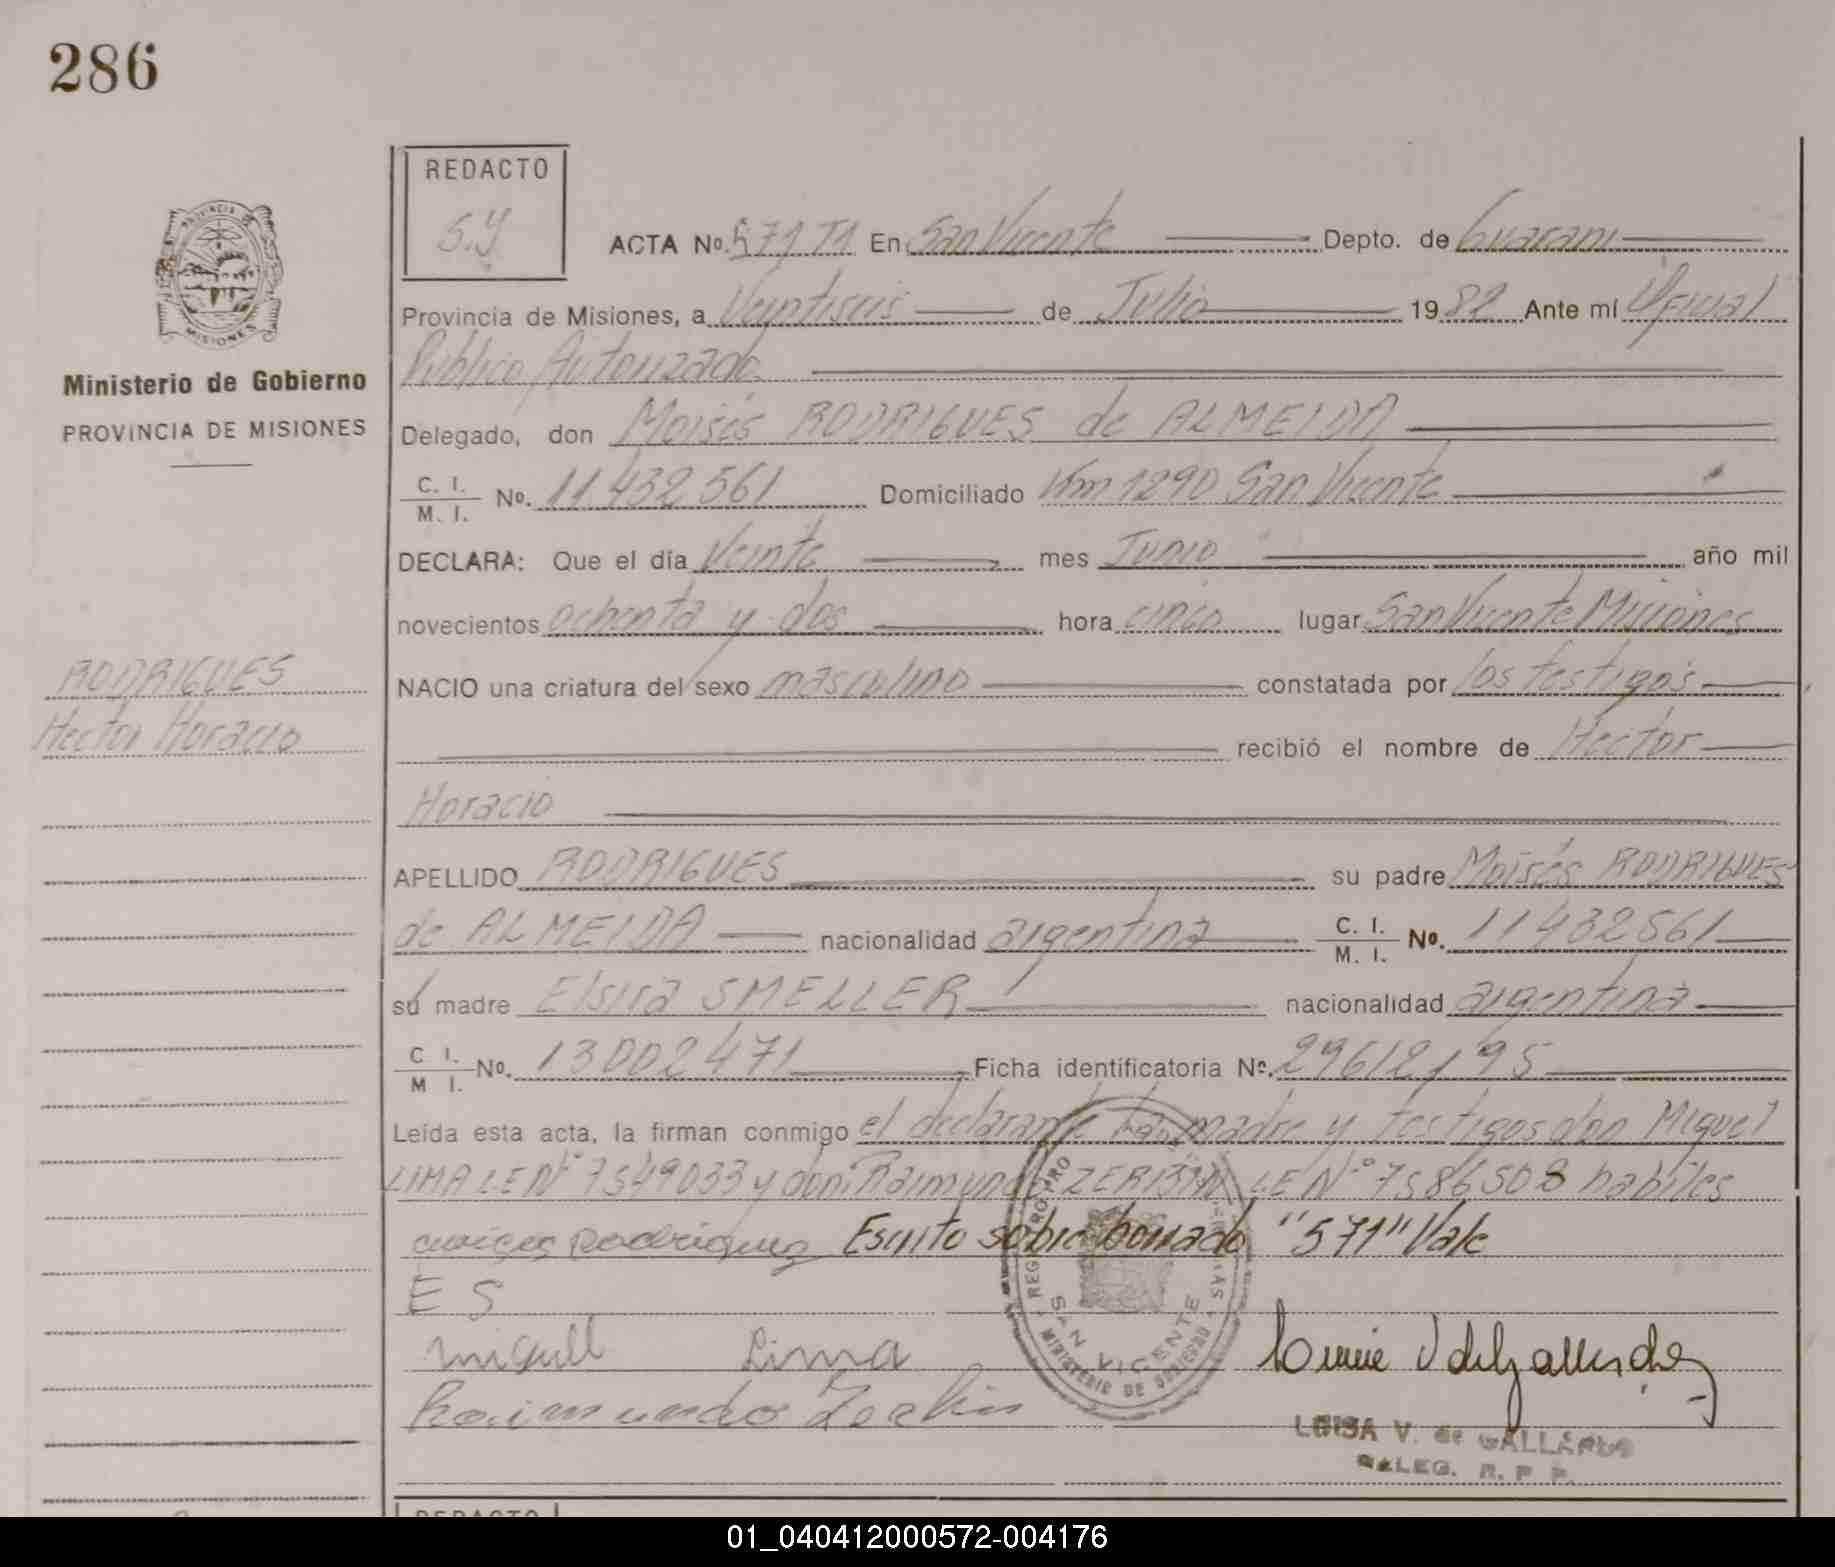 286
REDACTO
S.Y
ACTA No. 571 T1 En San Vicente Depto. de Guarani
Provincia de Misiones, a Veintiseis de Julio 1982 Ante mí Oficial
Publico Autorizado
Ministerio de Gobierno
PROVINCIA DE MISIONES
Delegado, don Moisés RODRIGUES de ALMEIDA
C. I.
M. I. No. 11.432.561 Domiciliado Km 1290 San Vicente
DECLARA: Que el día Veinte mes Junio año mil
novecientos ochenta y dos hora cinco lugar San Vicente Misiones
RODRIGUES
Hector Horacio
NACIO una criatura del sexo masculino constatada por los testigos
recibió el nombre de Hector
Horacio
APELLIDO RODRIGUES su padre Moisés RODRIGUES
de ALMEIDA nacionalidad argentina C. I. M. I. No. 11432561
su madre Elsira SMELLER nacionalidad argentina
C. I. M. I. No. 13002471 Ficha identificatoria No.
Leída esta acta, la firman conmigo el declarante la madre y testigos don Miguel
LIMA LE N° 7549033 y don Raimundo ZERBIN LE N° 7586508 habiles
moises Rodrigues Escrito sobre borrado "571" Vale
E S
miguel Lima
Raimundo Zerbin
SAN VICENTE
MINISTERIO DE GOBIERNO
LUISA V. de GALLARDO
DELEG. R. P. P.
REDACTO
01_040412000572-004176